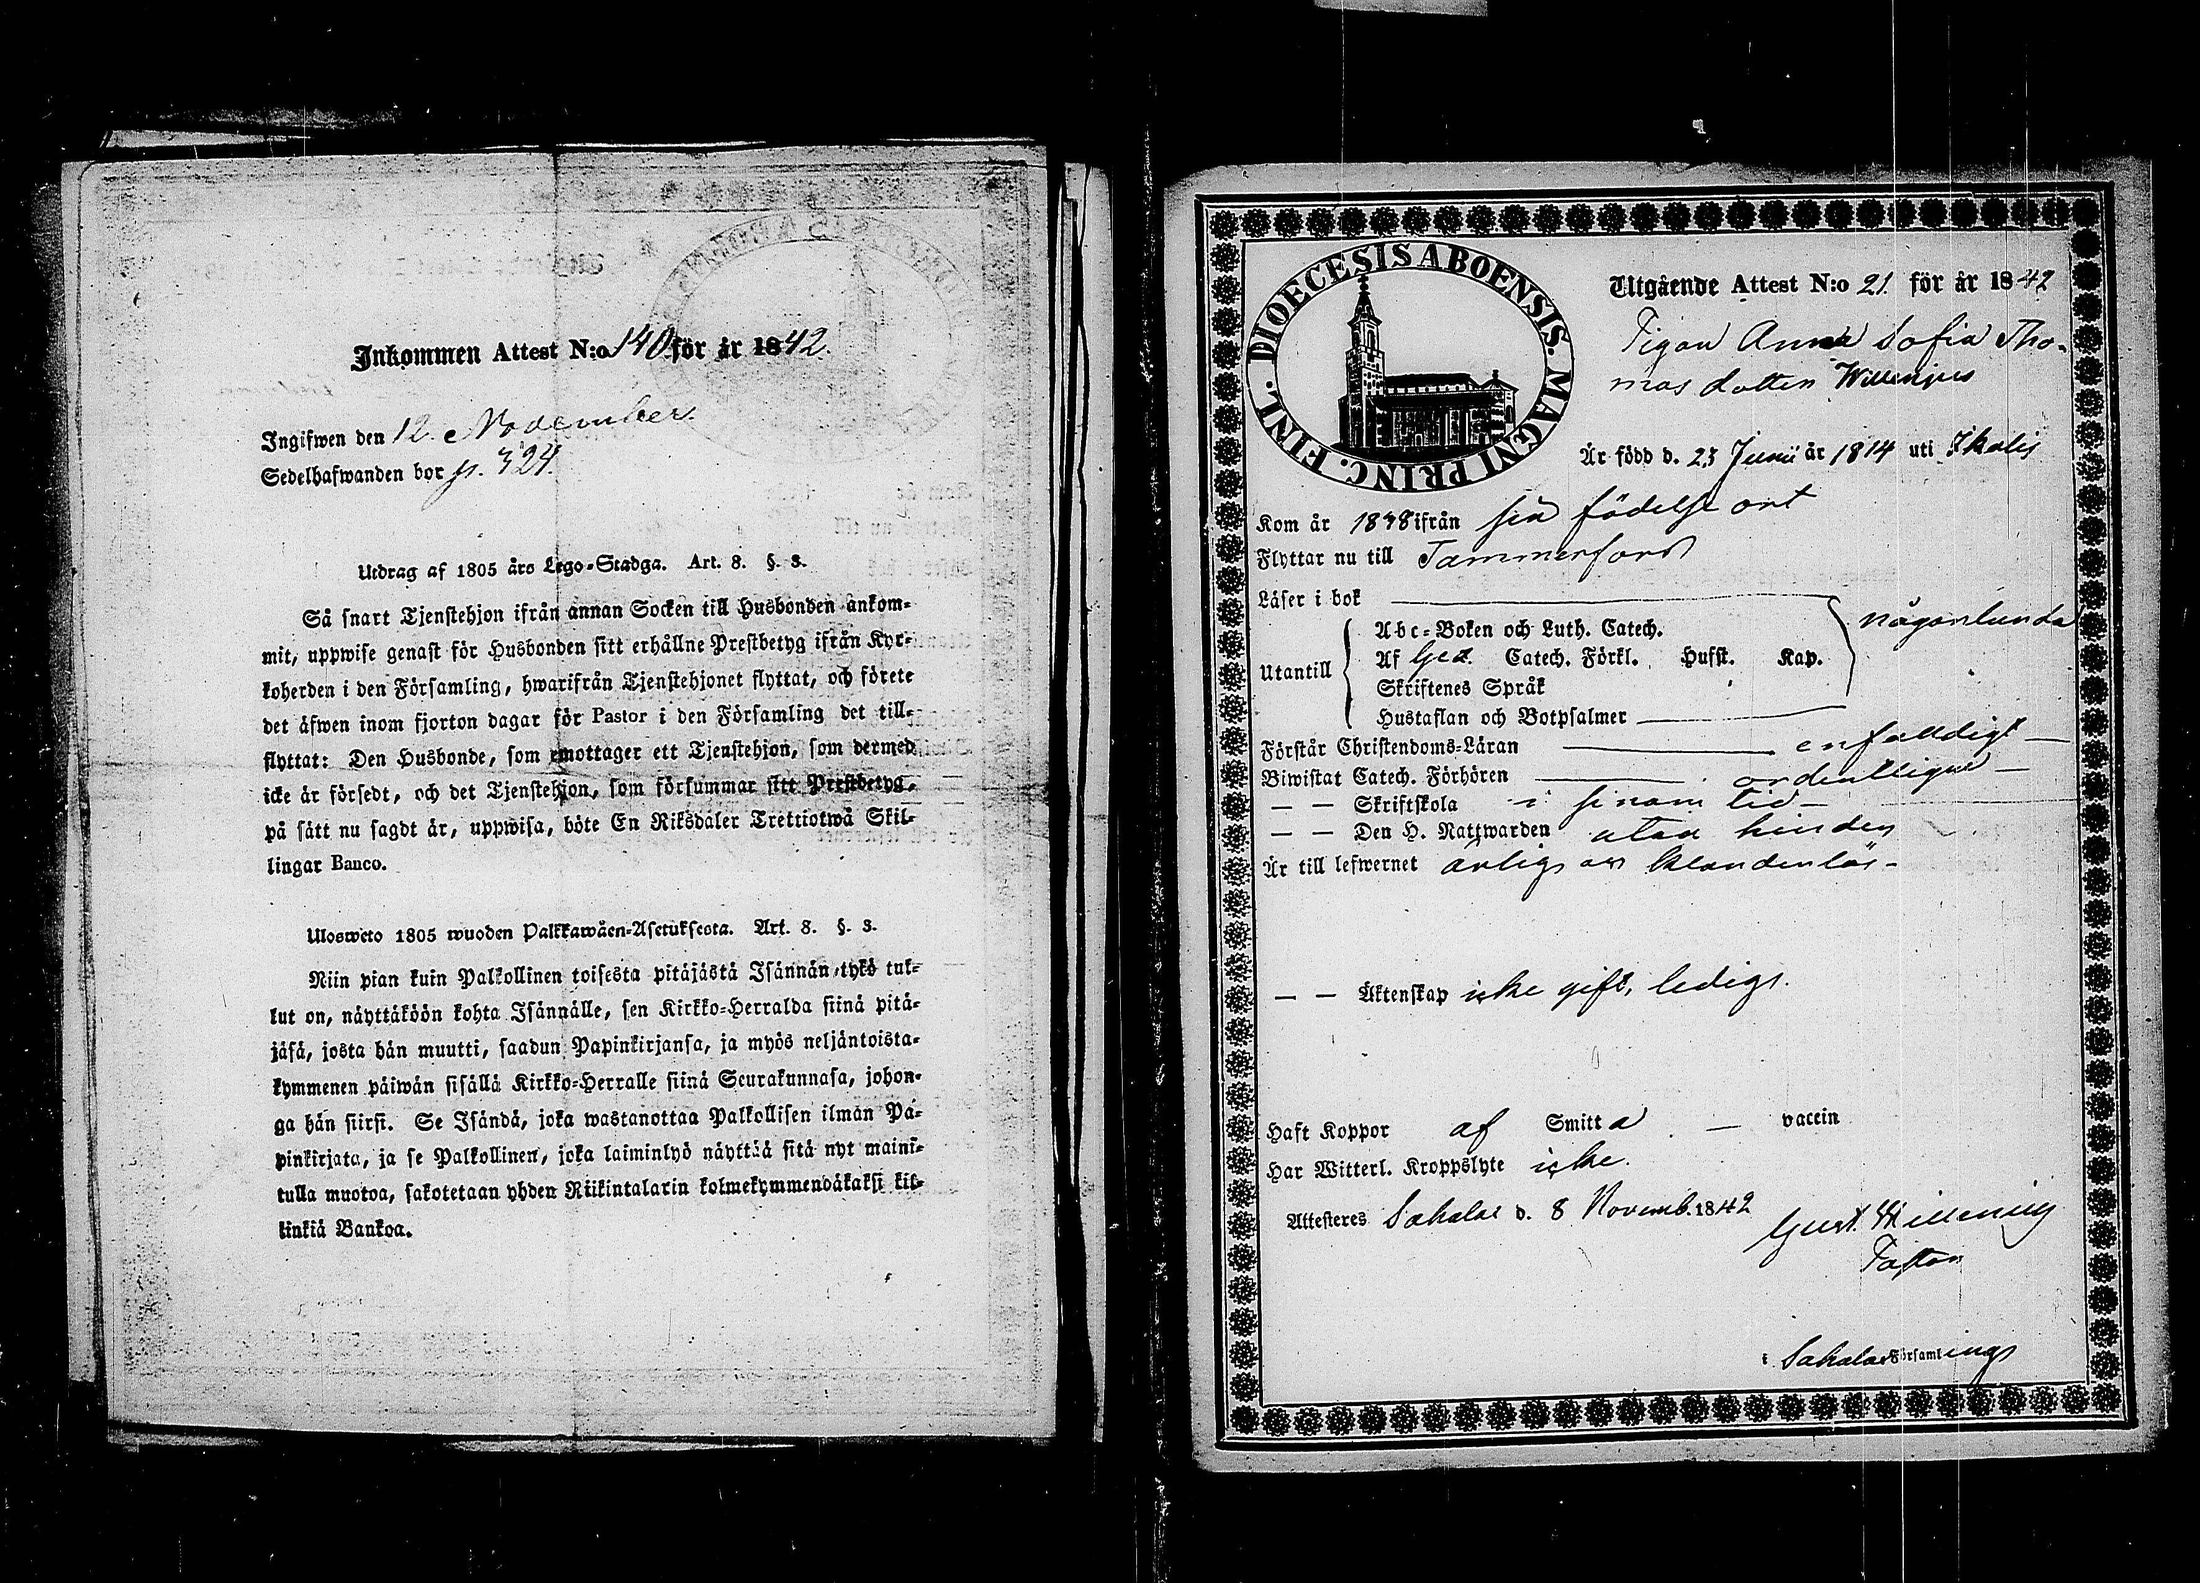 Inkommen Attest N:o 140 för år 1842.
Ingifwen den 12. November.
Sedelhafwanden bor p. 324.
Utdrag af 1805 års Lego-Stadga. Art. 8. §. 3.
Så snart Tjenstehjon ifrån annan Socken till Husbonden ankom-
mit, uppwise genast för Husbonden sitt erhållne Prestbetyg ifrån Kyr-
koherden i den Församling, hwarifrån Tjenstehjonet flyttat, och förete
det äfwen inom fjorton dagar för Pastor i den Församling det till-
flyttat: Den Husbonde, som emottager ett Tjenstehjon, som dermed
icke är försedt, och det Tjenstehjon, som försummar sitt Prestbetyg,
på sätt nu sagdt är, uppwisa, böte En Riksdaler Trettiotwå Skil-
lingar Banco.
Ulosweto 1805 wuoden Palkkawäen-Asetuksesta. Art. 8. §. 3.
Niin pian kuin Palkollinen toisesta pitäjästä Isännän tykö tul-
lut on, näyttäköön kohta Isännälle, sen Kirkko-Herralda siinä pitä-
jäsä, josta hän muutti, saadun Papinkirjansa, ja myös neljäntoista-
kymmenen päiwän sisällä Kirkko-Herralle siinä Seurakunnasa, johon-
ga hän siirsi. Se Isändä, joka wastanottaa Palkollisen ilman Pa-
pinkirjata, ja se Palkollinen, joka laiminlyö näyttää sitä nyt maini-
tulla muotoa, sakotetaan yhden Riikintalarin kolmekymmendäkaksi kil-
linkiä Bankoa.
DIOECESIS ABOENSIS. MAGNI PRINC. FINL.
Utgående Attest N:o 21. för år 1842
Pigan Anna Sofia Tho-
mas dotter Willenius
Är född d. 23 Junii år 1814 uti Ikalis
Kom år 1838 ifrån sin födelse ort
Flyttar nu till Tammerfors
Läser i bok
Abc-Boken och Luth. Catech. någorlunda
Utantill Af Ged. Catech. Förkl. Husst. Kap.
Skriftenes Språk
Hustaflan och Botpsalmer
Förstår Christendoms-Läran enfaldigt
Biwistat Catech. Förhören ordentligen
— — Skriftskola i sinom tid
— — Den H. Nattwarden utan hinder
Är till lefwernet ärlig och klanderlös
— — Äktenskap icke gift, ledig.
Haft Koppor af Smitta — vaccin
Har Witterl. Kroppslyte icke.
Attesteres Sahalax d. 8 Novemb. 1842
Gust.
Pastor
i Sahalax Församlings